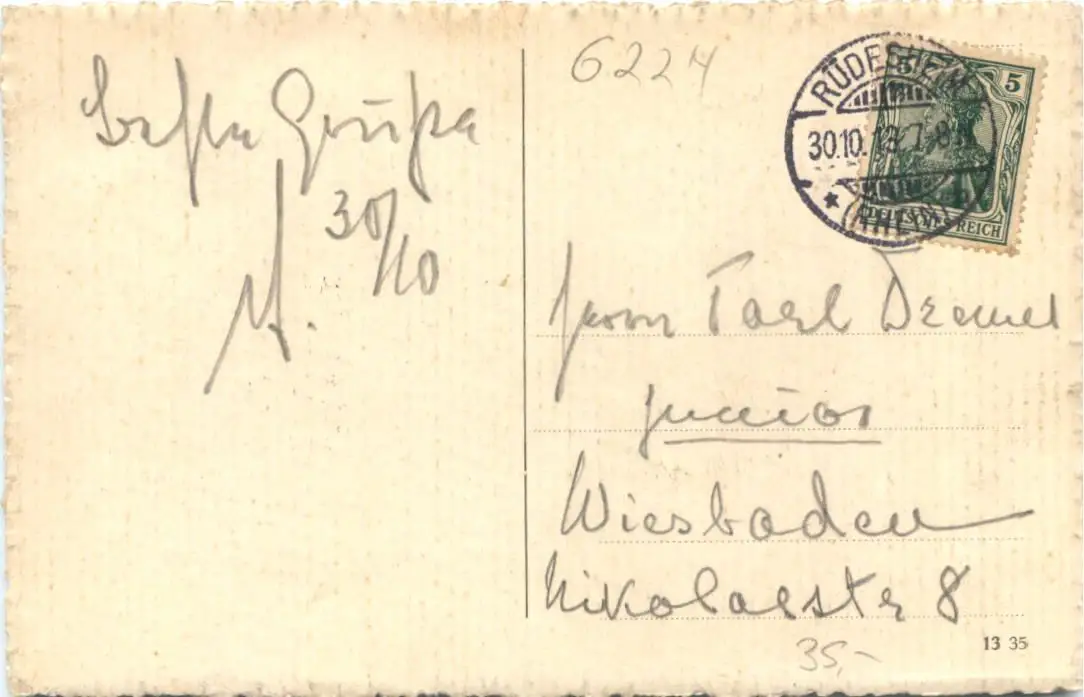 Beste Grüße
30/10
A.
6224
RÜDESHEIM
30.10.13. 7-8N
(RHEIN)
5 5
DEUTSCHES REICH
Herrn Carl Dremel
junior
Wiesbaden
Nikolasstr 8
35,-
13 35